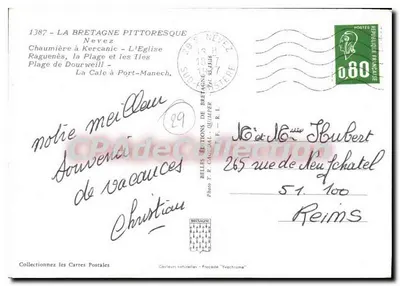 1387 - LA BRETAGNE PITTORESQUE
Nevez
Chaumière à Kercanic - L'Eglise
Raguenès, la Plage et les Iles
Plage de Dourweill -
La Cale à Port-Manech,
29 NEVEZ
SUD FINISTERE
POSTES
0,60
REPUBLIQUE FRANÇAISE
29
notre meilleur
souvenir
de vacances
Christian
BELLES EDITIONS DE BRETAGNE
Mr et Mme Hubert
265 rue de Neufchatel
51.100
Reims
CPladeCollection.com
BRETAGNE
Collectionnez les Cartes Postales
Couleurs naturelles - Procédé "Yvachrome"